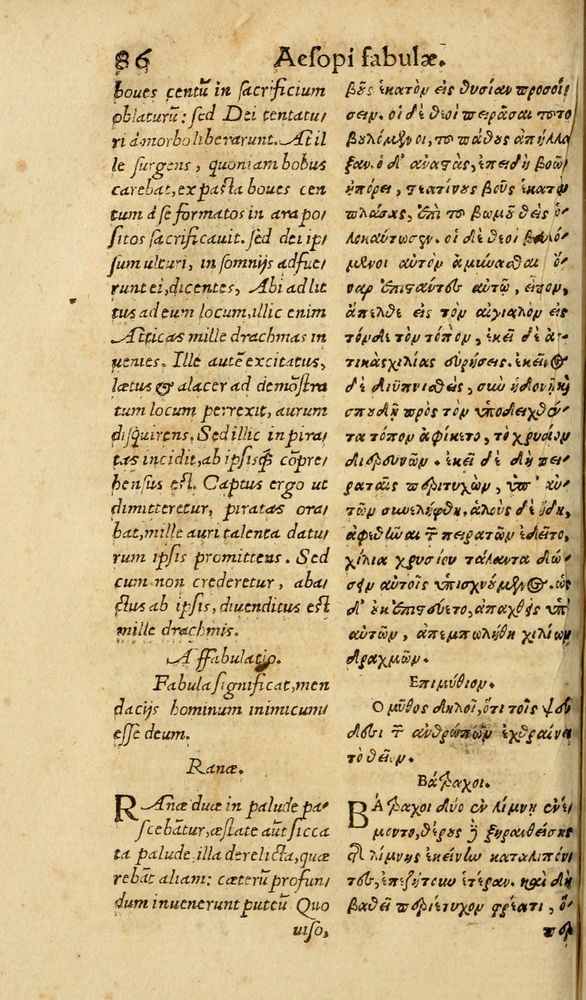 86 Aesopi fabulæ.
boves centū in sacrificium
oblaturū: sed Dei tentatu/
ri à morbo liberarunt. At il
le surgens, quoniam bobus
carebat, ex pasta boves cen
tum à se formatos in ara po/
sitos sacrificauit. sed dei ip/
sum ulturi, in somnijs adfue/
runt ei, dicentes, Abi ad lit
tus ad eum locum, illic enim
Atticas mille drachmas in
uenies. Ille autē excitatus,
lætus & alacer ad demōstra
tum locum perrexit, aurum
disquirens. Sed illic in pira/
tas incidit, ab ipsisq́; cōpre/
hensus est. Captus ergo ut
dimitteretur, piratas ora/
bat, mille auri talenta datu/
rum ipsis promittens. Sed
cum non crederetur, aba/
ctus ab ipsis, diuenditus est
mille drachmis.
Affabulatio.
Fabula significat, men
dacijs hominum inimicum
esse deum.
Ranæ.
RAnæ duæ in palude pa/
scebātur, æstate aūt sicca
ta palude, illa derelicta, quæ
rebāt aliam: cæterū profun/
dum inuenerunt puteū Quo
uiso,
βοῦς ἑκατὸν εἰς θυσίαν προσοί/
σειν. οἱ δὲ θεοὶ πειρᾶσαι τοῦτο
βουλόμενοι, τοῦ πάθους ἀπήλλα
ξαν. ὁ δ' ἀναστὰς, ἐπειδὴ βοῶν
ἠπόρει, στεατίνους βοῦς ἑκατὸν
πλάσας, ἐπὶ τοῦ βωμοῦ θεὶς ὁ/
λοκαύτωσεν. οἱ δὲ θεοὶ βουλό/
μενοι αὐτὸν ἀμύνασθαι ὄ/
ναρ ἐπιστάντες αὐτῷ, εἶπον,
ἄπελθε εἰς τὸν αἰγιαλὸν εἰς
τόνδε τὸν τόπον, ἐκεῖ δὲ ἀτ/
τικὰς χιλίας εὑρήσεις. ἐκεῖνος
δὲ διϋπνισθεὶς, σὺν ἡδονῇ κὶ
σπουδῇ πρὸς τὸν ὑποδειχθέν/
τα τόπον ἀφίκετο, τὸ χρυσίον
διερευνῶν. ἐκεῖ δὲ δὴ πει/
ραταῖς περιτυχὼν, ὑπ' αὐ/
τῶν συνελήφθη. ἁλοὺς δὲ ἤδη,
ἀφεθῆναι τῶν πειρατῶν ἐδεῖτο,
χίλια χρυσίου τάλαντα δώ/
σειν αὐτοῖς ὑπισχνούμενος. ὡς
δ' οὐκ ἐπιστεύετο, ἀπαχθεὶς ὑπ'
αὐτῶν, ἀπεμπωλήθη χιλίων
δραχμῶν.
Ἐπιμύθιον.
Ὁ μῦθος δηλοῖ, ὅτι τοῖς ψεύ
δεσι τῶν ἀνθρώπων ἐχθραίνει
τὸ θεῖον.
Βάτραχοι.
Βάτραχοι δύο ἐν λίμνῃ ἐνέ/
μοντο, θέρους δὲ ξηρανθείσης
τῆς λίμνης ἐκείνην καταλιπόν/
τες, ἐπεζήτουν ἑτέραν. καὶ δὴ
βαθεῖ περιέτυχον φρέατι, ὅ/
περ